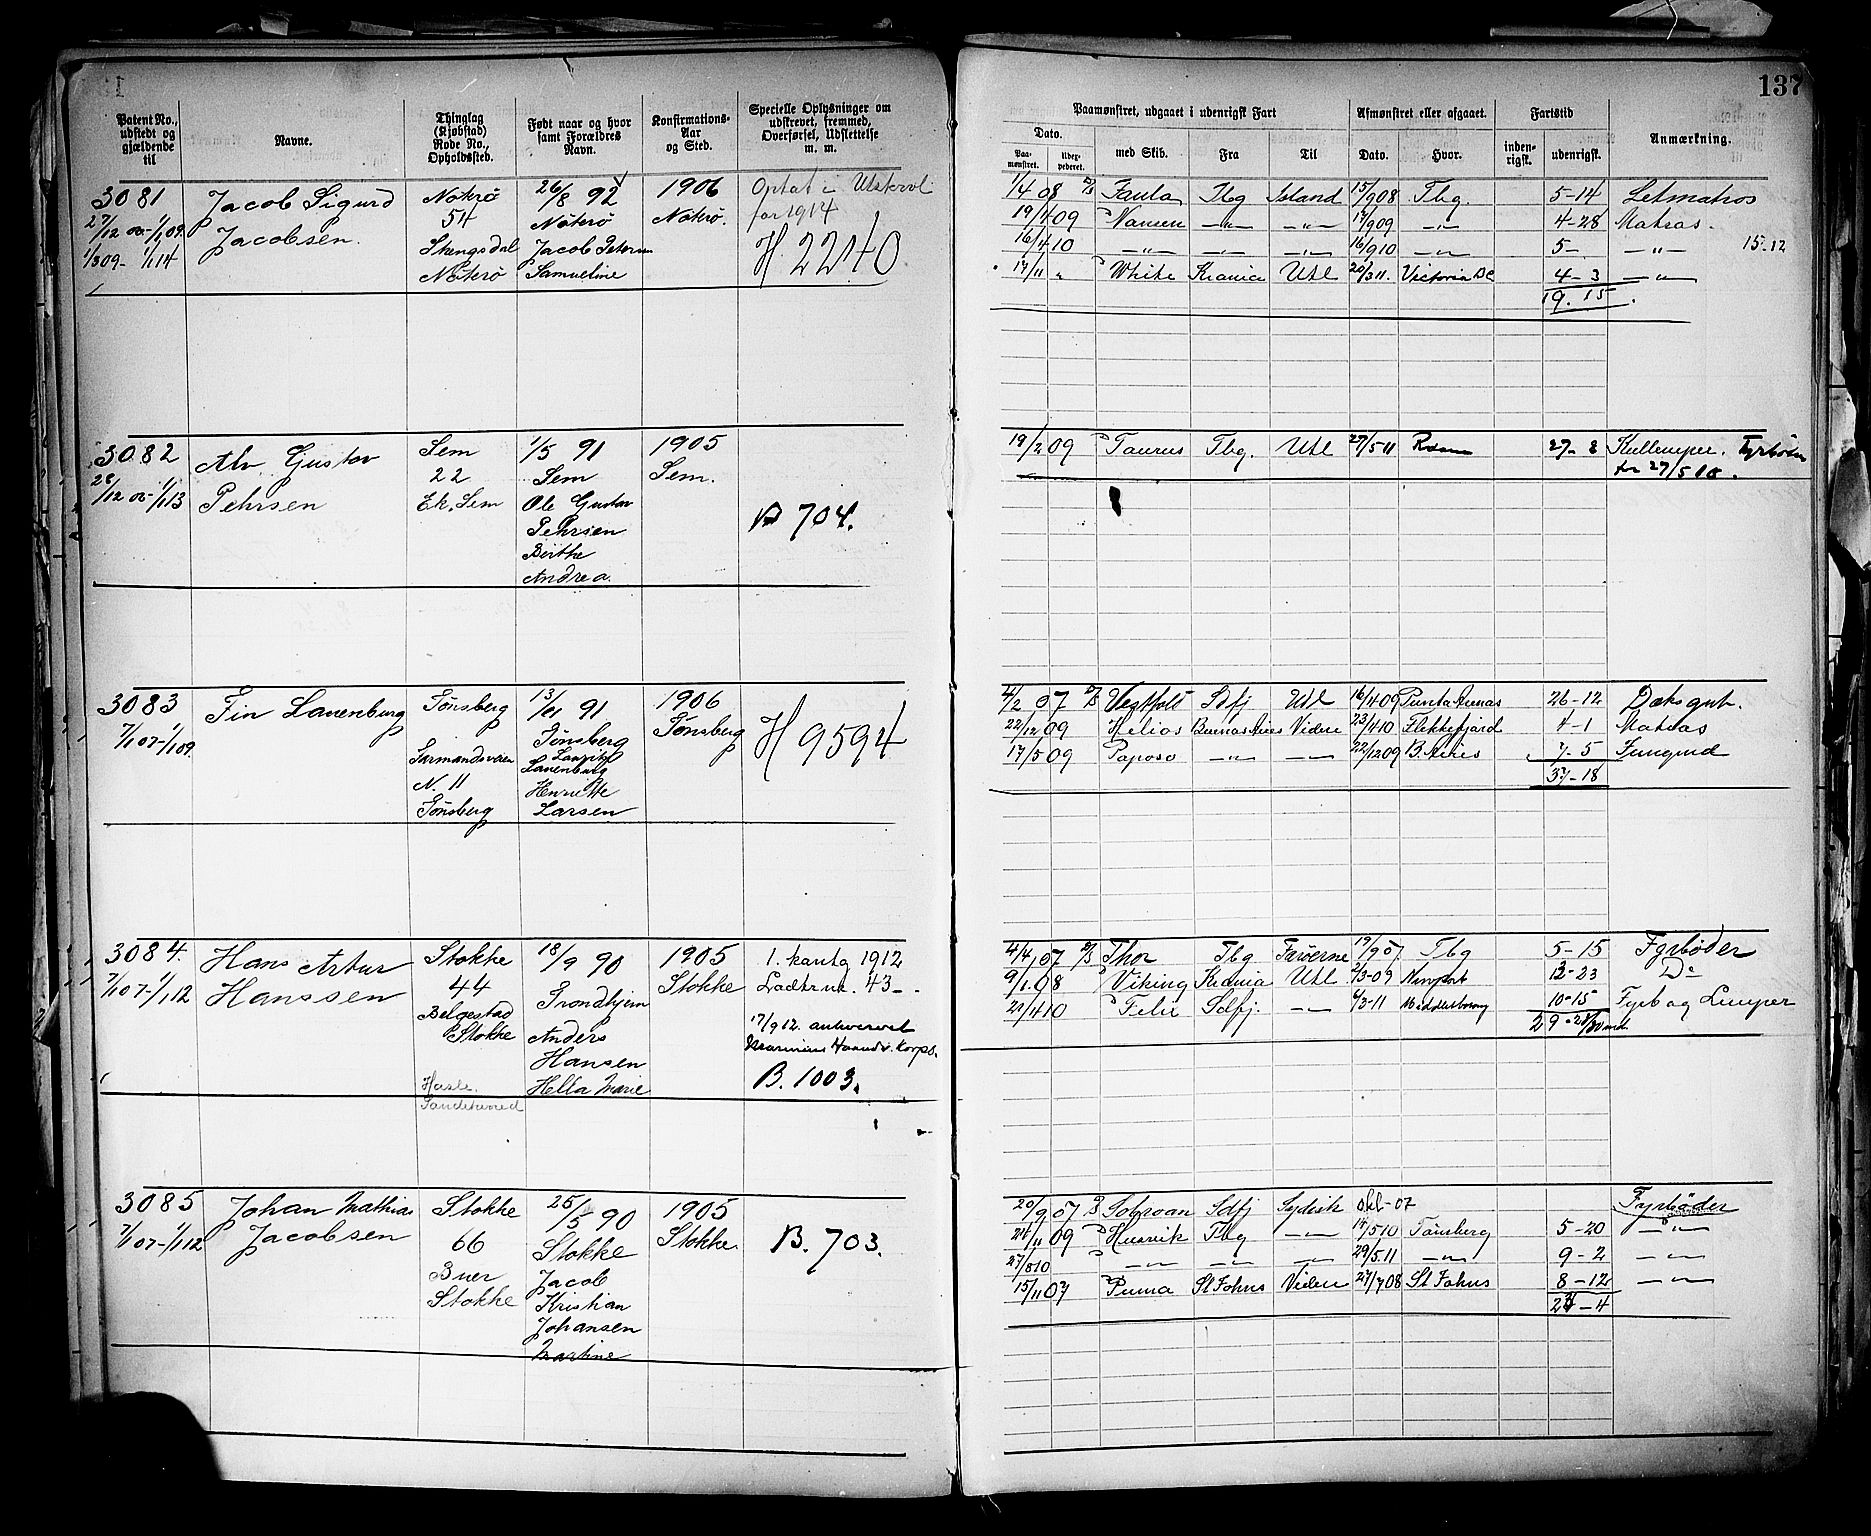 137
Patent No., udstedt og gjældende til
Navne.
Thinglag (Kjøbstad) Rode No., Opholdssteb.
Født naar og hvor samt Forældres Navn.
Konfirmations-Aar og Sted.
Specielle Oplysninger om udskrevet, fremmed, Overførsel, Udslettelse m. m.
Paamønstret, udgaaet i udenrigsk Fart
Afmønstret eller afgaaet.
Fartstid
Anmærkning.
Dato.
Paamønstret.
med Skib.
Fra
Til
Dato.
Hvor.
indenrigsk.
udenrigsk.
3081 Jacob Sigurd Nøterø 26/8 92 1906
54 Nøterø Nøterø. for 1914
1/1 09
Jacobsen. Skengsdal Jacob
1/1 14 Nøterø Samueline H 2240.
1/4 08 Tbg Island 15/9 08 Tbg. 5-14 Letmatros
19/4 09 Nansen —"— —"— 4-28 Matros.
16/4 10 —"— —"— —"— 16/9 10 —"— 5- —"— 15-12
White Utl Victoria BC 4-3 —"—
19.15
3082 Alv Gustav Sem 1/5 91 1905
22 Sem Sem.
1/1 13 Pehrsen Ek. Sem Ole Gustav
Pehrsen B 704.
Birthe
Andrea.
19/2 09 Taurus Tbg. Utl 27/5 11 27-8 Kullemper. Fyrbøter
27/5 10.
3083 Fin Lauenburg Tønsberg 13/11 91 1906
7/1 07-1/1 09. Tønsberg Tønsberg H 9594
N. 11 Lauenburg
Tønsberg Henriette
Larsen
4/2 07 Vestfold Sdfj Utl 16/4 09 Punta Arenas 26-12 Dæksgut.
22/12 09 Helios Buenos Aires Viden 23/4 10 Flekkefjord 4-1 Matros
17/5 09 Paposo —"— —"— 22/12 09 B. Aires 7-5 Jungmd
37-18
3084. Hans Artur Stokke 18/9 90 1905 1. 1912
7/1 07-1/1 12 Hanssen 44 Trondhjem Stokke 43-.
Stokke Anders 17/9 12.
Hansen
Hella Marie B. 1003.
Hasle
4/4 07 Thor Tbg Færøerne 19/9 07 Tbg 5-15 Fyrbøder
9/1 08 Viking Utl 2/3-09 Newport 12-23 Do
Sdfj. —"— 4/3-11 Middlesborug 10-15 Fyrb og Lemper
3085 Johan Mathias Stokke 25/5 90 1905
7/1 07-1/1 12 Jacobsen 66 Stokke Stokke. B. 703.
Buer Jacob
Stokke Kristian
Johansen
Martine
20/9 07 Sobraon Sdfj Sydisk Okt-07 Fyrbøder
Husvik Tbg —"— Tønsberg 5-20 —"—
27/8 10 —"— —"— —"— 29/5.11 —"— 9-2 —"—
15/11 07 Puma St Johns Viden 27/7 08 St Johns 8-12 —"—